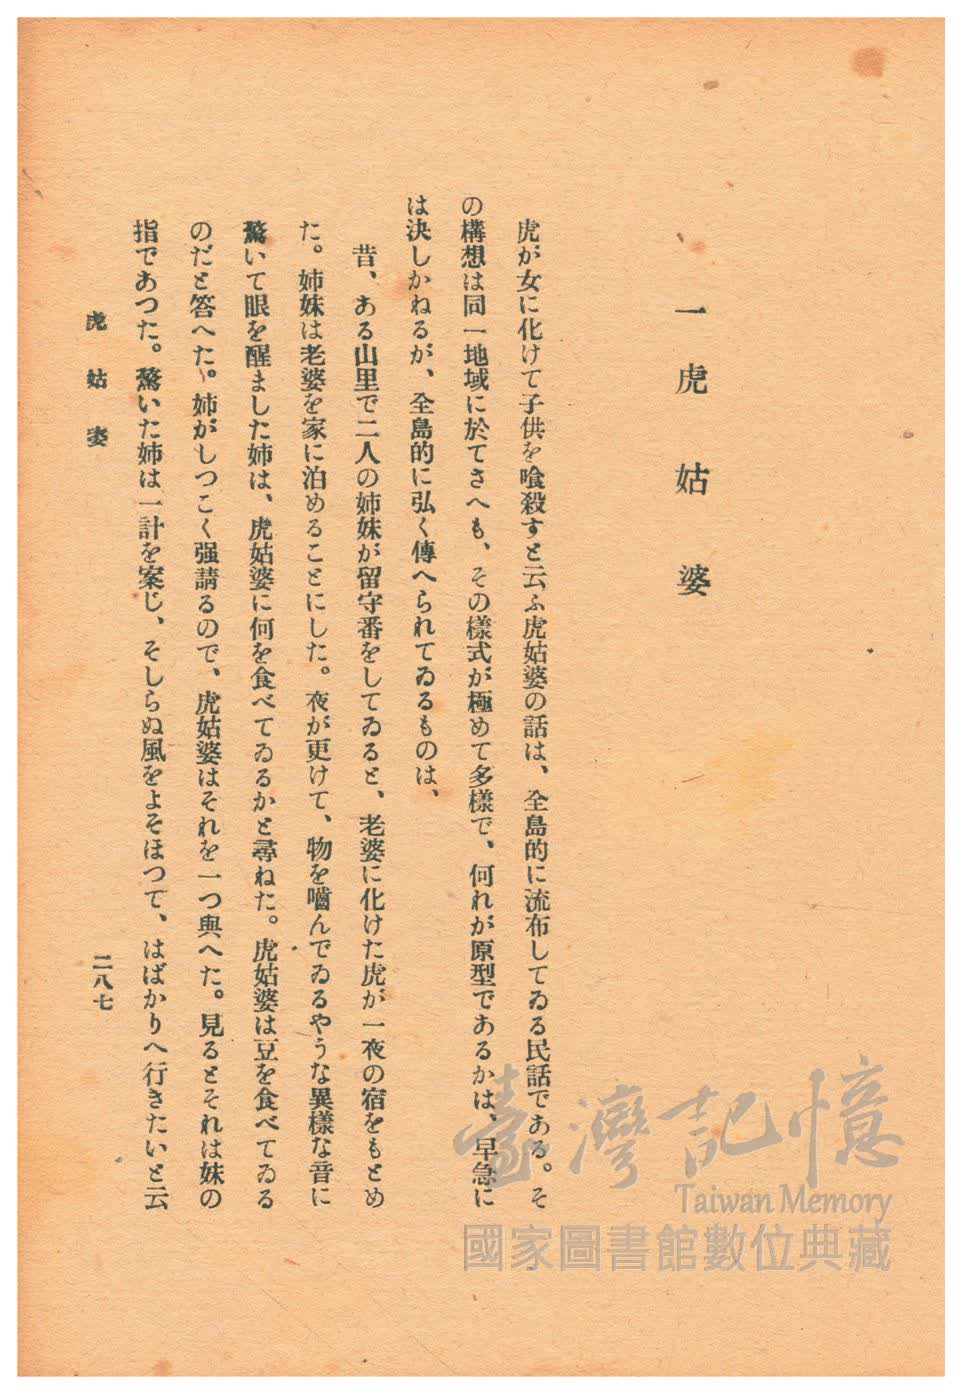 一 虎姑婆
虎が女に化けて子供を喰殺すと云ふ虎姑婆の話は、全島的に流布してゐる民話である。そ
の構想は同一地域に於てさへも、その樣式が極めて多樣で、何れが原型であるかは、早急に
は決しかねるが、全島的に弘く傳へられてゐるものは、
昔、ある山里で二人の姉妹が留守番をしてゐると、老婆に化けた虎が一夜の宿をもとめ
た。姉妹は老婆を家に泊めることにした。夜が更けて、物を嚙んでゐるやうな異樣な音に
驚いて眼を醒ました姉は、虎姑婆に何を食べてゐるかと尋ねた。虎姑婆は豆を食べてゐる
のだと答へた。姉がしつこく强請るので、虎姑婆はそれを一つ與へた。見るとそれは妹の
指であつた。驚いた姉は一計を案じ、そしらぬ風をよそほつて、はばかりへ行きたいと云
虎姑婆
二八七
臺灣記憶
Taiwan Memory
國家圖書館數位典藏